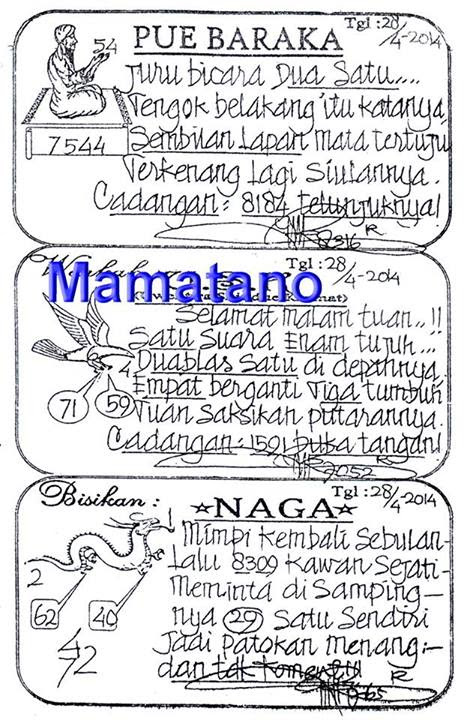 PUE BARAKA
Tgl : 28/4-2014
54
7544
Juru bicara Dua Satu....
Tengok belakang itu katanya
Sembilan Lapan mata tertuju
Terkenang lagi Siulannya.
Cadangan : 8184 Petunjuknya!
8316 R
Mamatano
Tgl : 28/4-2014
Selamat malam tuan..!!
Satu Suara Enam tujuh...
Duablas Satu di depannya
Empat berganti Tiga tumbuh
Tuan Saksikan putarannya.
Cadangan : 1591 buka tangan!
4
71
59
7052
Bisikan :
☆NAGA☆
Tgl : 28/4-2014
Mimpi kembali Sebulan-
Lalu 8309 kawan Sejati-
Meminta di Samping-
nya (29) Satu Sendiri
Jadi patokan menang:-
dan tak
R
2
62
40
4
72